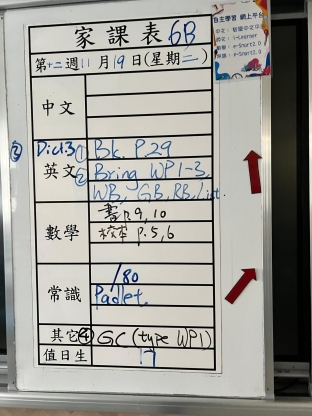 家課表 6B
第十二週11月19日(星期二)
中文
② Dict.3 ① Bk. P29
英文 ② Bring WP1-3,
WB, GB, RB, List.
數學 書P.9, 10
校本 P.5, 6
常識 /80
Padlet.
其它 ④ GC (type WP1)
值日生 17
自主學習 網上平台
i-Learner
e-Smart2.0
e-Smart2.0